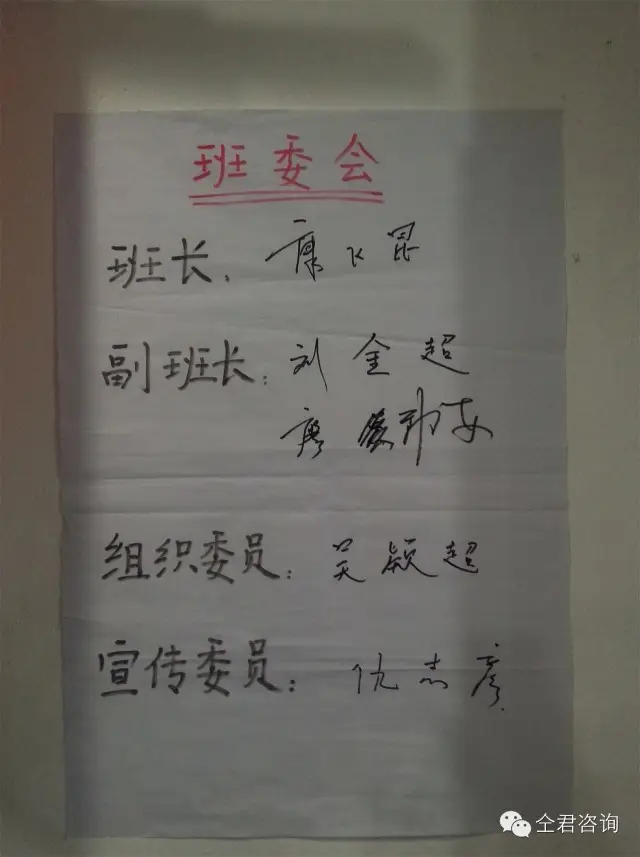 班委会
班长: 康飞昆
副班长: 刘金超
廖
组织委员: 吴颖超
宣传委员: 仇志彦
仝君咨询